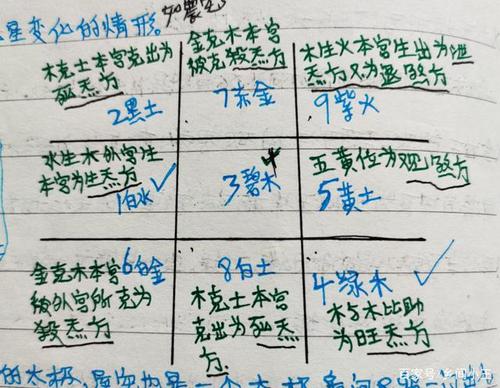 星变化的情形
木克土本宫克出为
死炁方
2黑土
金克木本宫
被克殺炁方
7赤金
木生火本宫生出为泄
炁方又为退煞方
9紫火
水生木外宫生
本宫为生炁方
1白水
中
3碧木
五黄位为观煞方
5黄土
6白金
金克木本宫
被外宫所克为
殺炁方
8白土
木克土本宫
克出为死炁
方
4绿木
木与木比助
为旺炁方
的太极
百家号/乡间小王